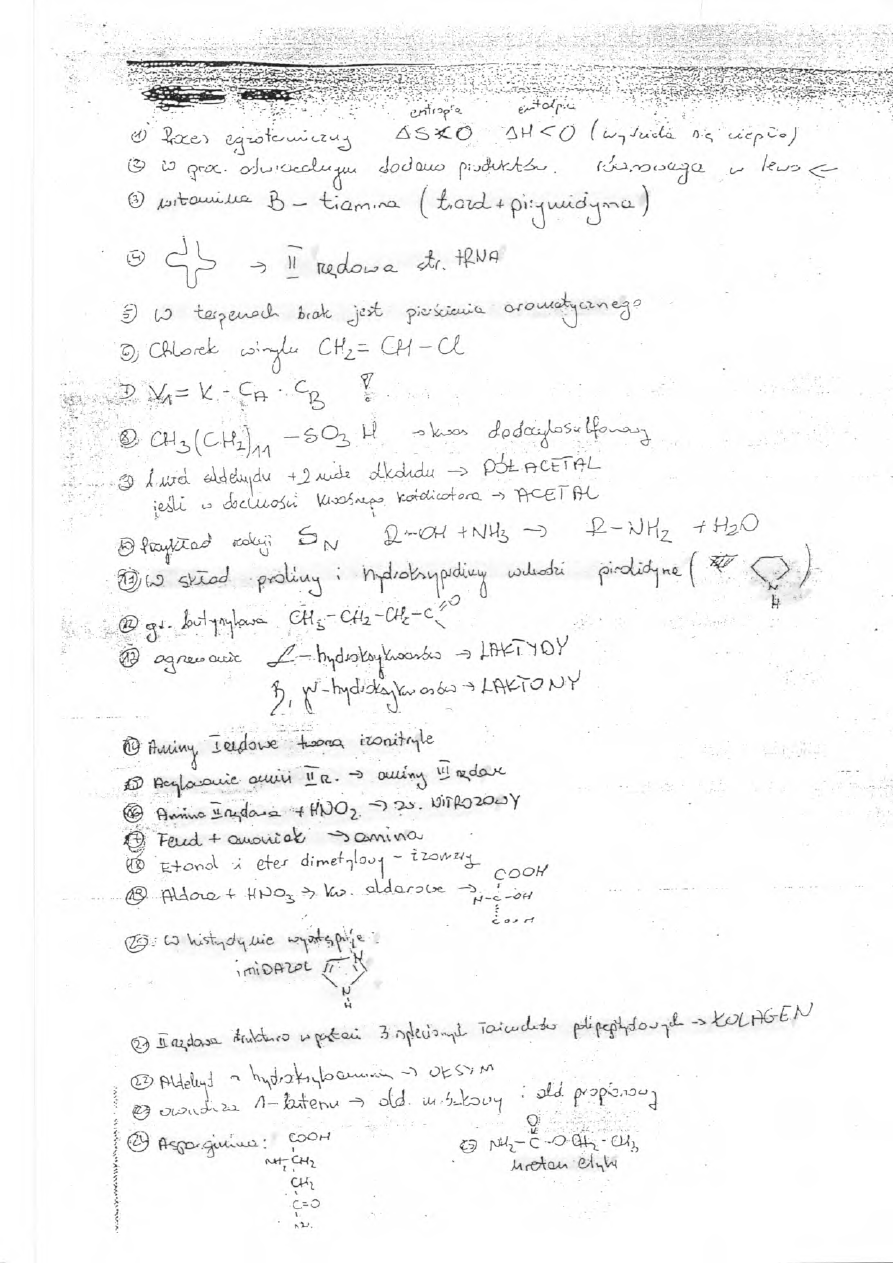 entropia entalpia
① Proces egzotermiczny ΔS>0 ΔH<0 (wydziela się ciepło)
② W proc. odwracalnym dodano produktów. Równowaga w lewo ←
③ witamina B – tiamina (tiazol + pirymidyna)
④ → II rzędowa str. tRNA
⑤ W terpenach brak jest pierścienia aromatycznego
⑥ Chlorek winylu CH₂=CH–Cl
⑦ V₁ = K · C_A · C_B !
⑧ CH₃(CH₂)₁₁ –SO₃H → kwas dodecylosulfonowy
⑨ 1 mol aldehydu + 2 mole alkoholu → PÓŁACETAL
jeśli w obecności kwaśnego katalizatora → ACETAL
⑩ Przykład reakcji S_N R–OH + NH₃ → R–NH₂ + H₂O
⑪ W skład proliny i hydroksyproliny wchodzi pirolidyna ( N H )
⑫ gr. butyrylowa CH₃–CH₂–CH₂–C=O
⑬ ogrzewanie α–hydroksykwasów → LAKTYDY
β, γ–hydroksykwasów → LAKTONY
⑭ Aminy I rzędowe tworzą izonitryle
⑮ Acylowanie amin II R. → aminy III rzędowe
⑯ Amina II rzędowa + HNO₂ → zw. NITROZOWY
⑰ Fenol + amoniak → amina
⑱ Etanol i eter dimetylowy – izomery
⑲ Aldoza + HNO₃ → kw. aldarowe → COOH
H–C–OH
COOH
⑳ W histydynie występuje:
IMIDAZOL N N H
㉑ II rzędowa struktura w postaci 3 splecionych łańcuchów polipeptydowych → KOLAGEN
㉒ Aldehyd + hydroksyloamina → OKSYM
㉓ 1-butenu → ald. mrówkowy i ald. propionowy
㉔ Asparagina: COOH
NH₂–CH₂
CH₂
C=O
NH₂
㉕ NH₂–C–O–CH₂–CH₃
O
Uretan etylu